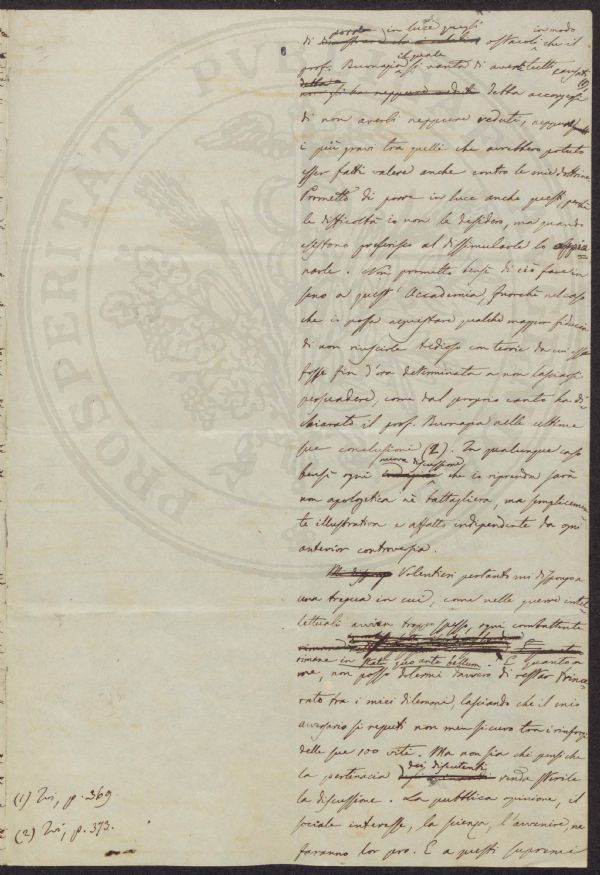 di porre in luce quegli ostacoli in modo che il
prof. Buonapia il quale si vanta di averli tutti causati
della (1) della accorgersi
di non averli neppure veduti, neppure
i più gravi tra quelli che avrebbero potuto
esser fatti valere anche contro le mie dottrine
Prometto di porre in luce anche questi, perchè
le difficoltà io non le desidero, ma quando
esistono preferisco al dissimularle lo appia=
narle. Non prometto bensì di ciò fare in
seno a quest' Accademia, fuorchè nel caso
che io possa acquistare qualche maggior fiducia
di non riuscirle tedioso con teorie da cui essa
fosse fin d'ora determinata a non lasciarsi
persuadere, come dal proprio canto ha di=
chiarato il prof. Buonapia nelle ultime
sue conclusioni (2). In qualunque caso
bensì ogni nuova discussione che io riprenda sarà
non apologetica nè battagliera, ma semplicemen=
te illustrativa e affatto indipendente da ogni
anterior controversia.
Mi dispongo Volentieri pertanto mi dispongo a
una tregua in cui, come nelle guerre intel=
lettuali avvien troppo spesso, ogni combattente
rimane in statu quo ante bellum. E quanto a
me, non posso dolermi davvero di restar trince=
rato tra i miei dilemmi, lasciando che il mio
avversario si reputi non men sicuro tra i rinforzi
delle sue 100 viti. Ma non sia che perciò che
la pertinacia dei disputanti renda sterile
la discussione. La pubblica opinione, il
sociale interesse, la scienza, l'avvenire, ne
faranno lor pro. E a questi supremi
(1) Ivi, p. 369.
(2) Ivi, p. 373.
PROSPERITATI PUBLICAE